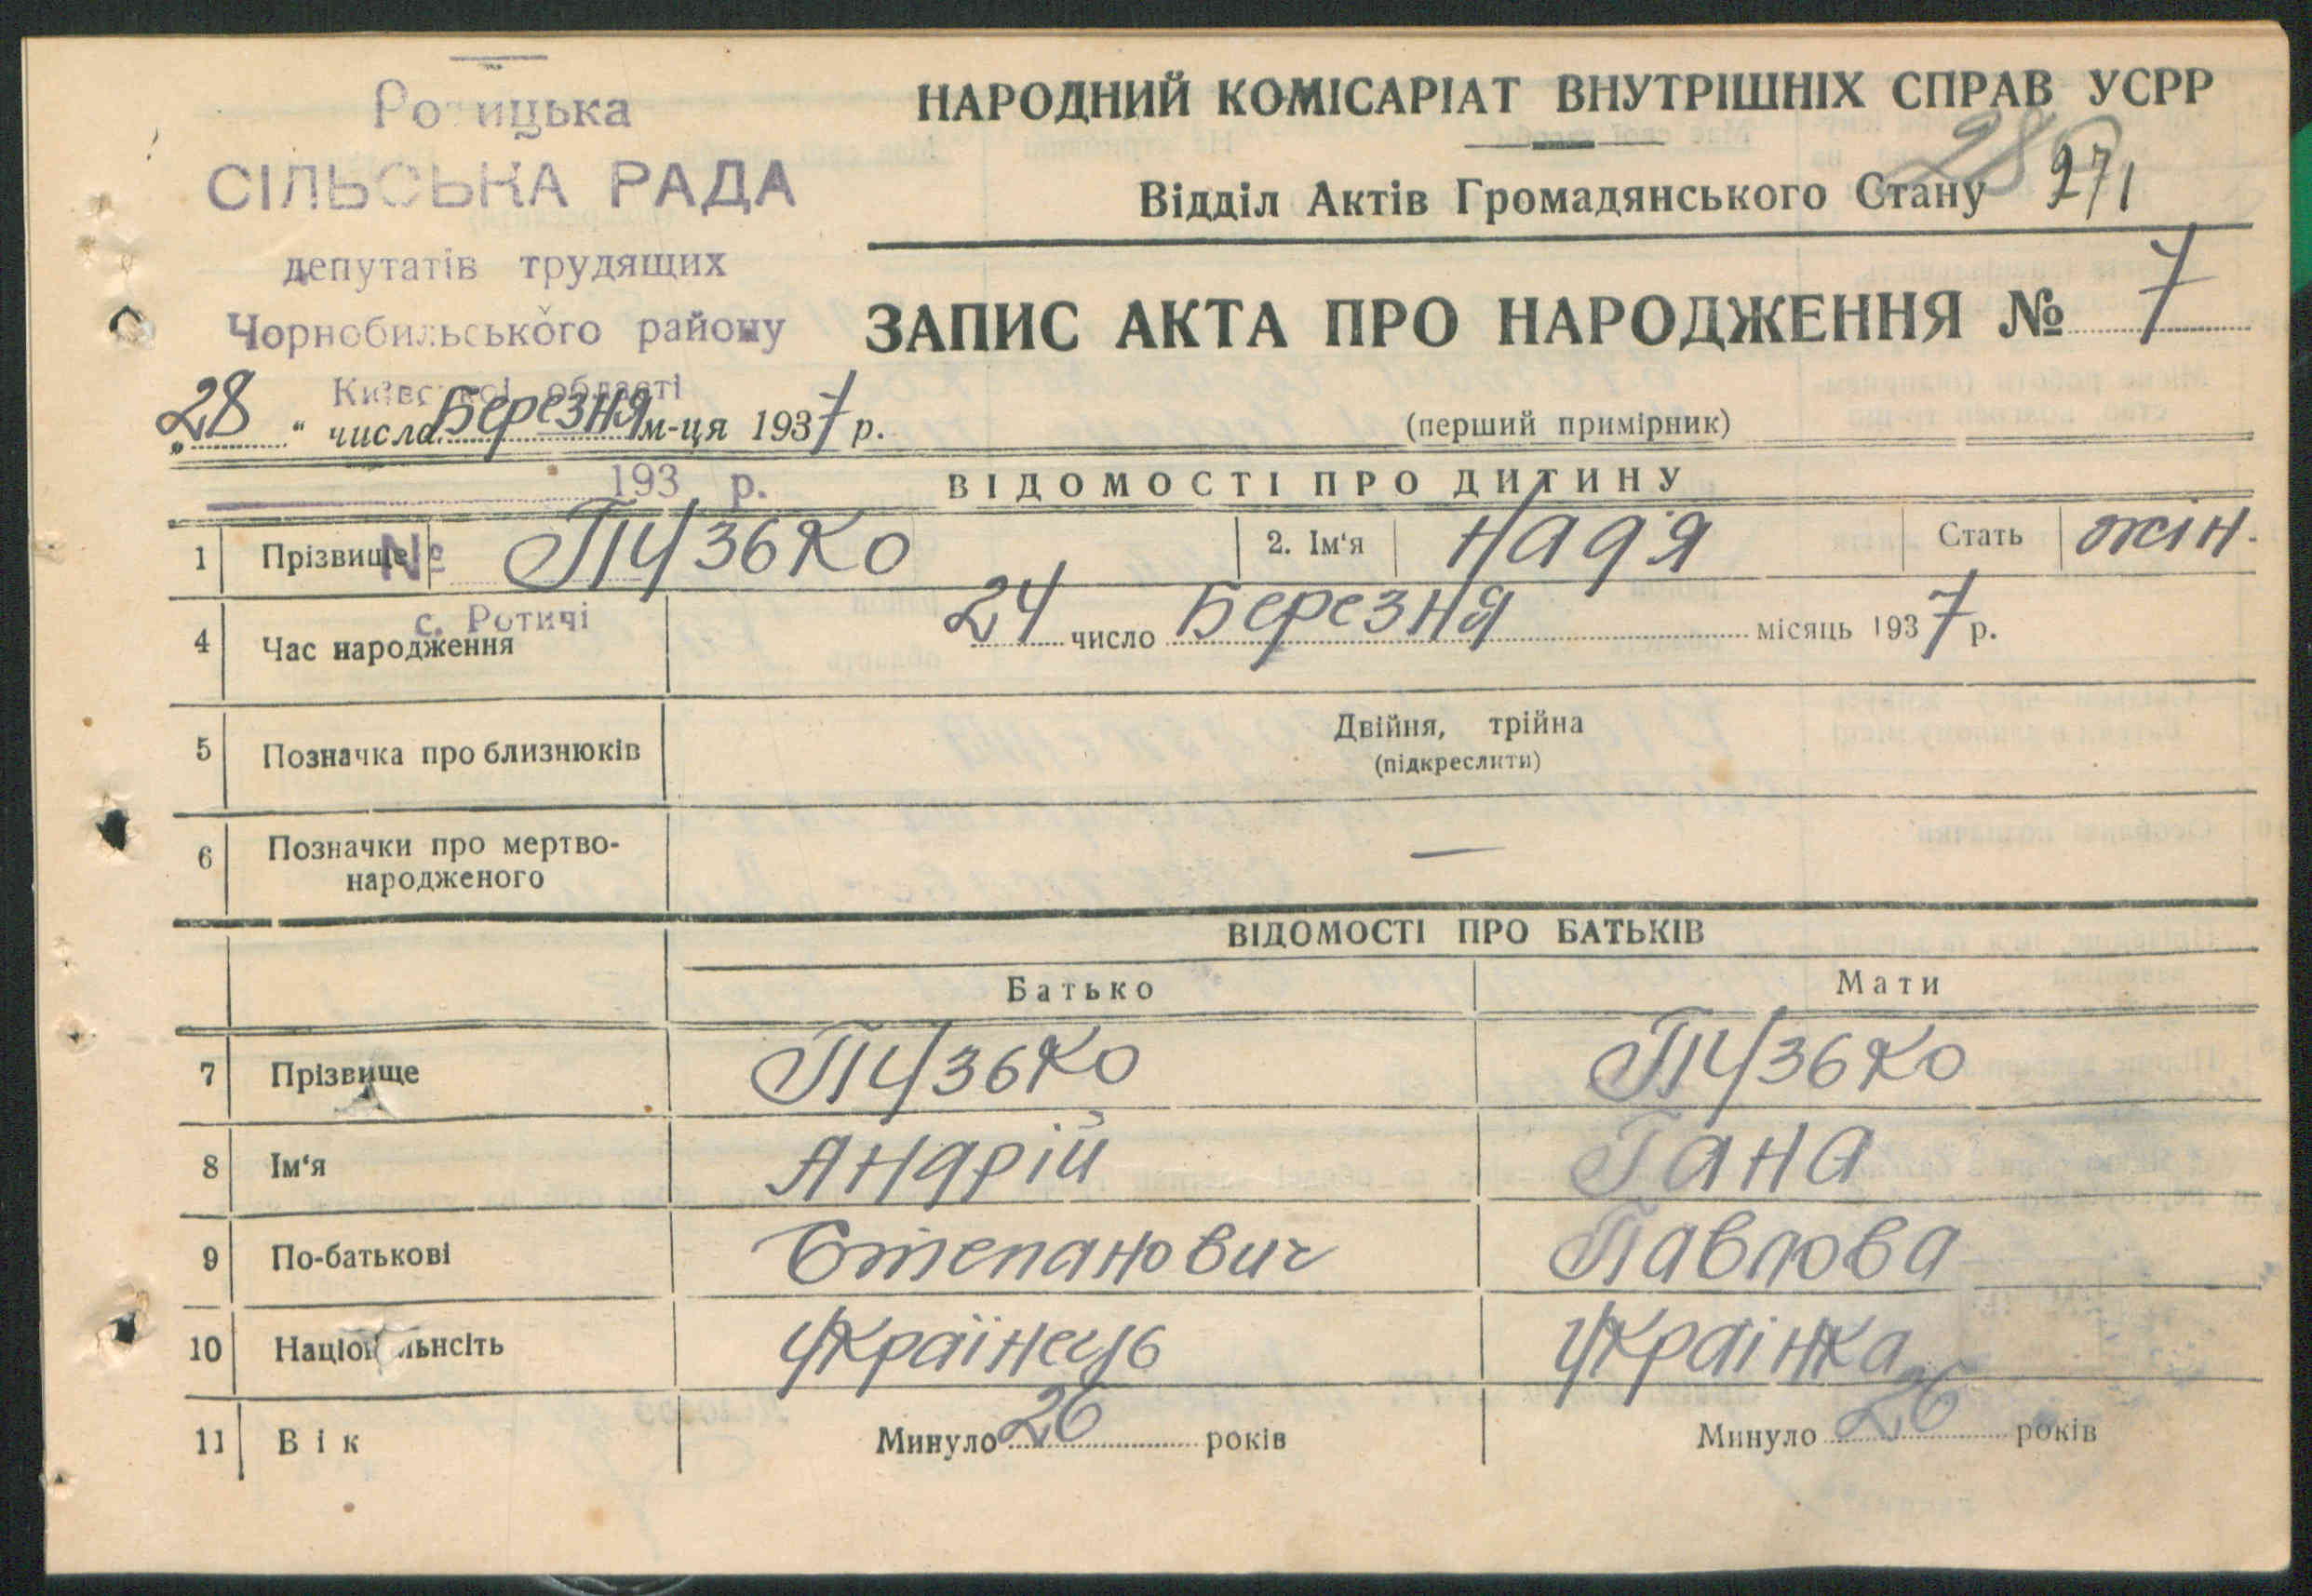 Ротицька
СІЛЬСЬКА РАДА
депутатів трудящих
Чорнобильського району
Київської області
193 р.
№
с. Ротичі
НАРОДНИЙ КОМІСАРІАТ ВНУТРІШНІХ СПРАВ УСРР
Відділ Актів Громадянського Стану 271
ЗАПИС АКТА ПРО НАРОДЖЕННЯ № 7
„28“ числа Березня м-ця 1937 р.
(перший примірник)
ВІДОМОСТІ ПРО ДИТИНУ
1 Прізвище Пузько 2. Ім‘я Надя Стать жін.
4 Час народження 24 число Березня місяць 1937 р.
5 Позначка про близнюків Двійня, трійна
(підкреслити)
6 Позначки про мертво-
народженого —
ВІДОМОСТІ ПРО БАТЬКІВ
Батько Мати
7 Прізвище Пузько Пузько
8 Ім‘я Андрій Гана
9 По-батькові Степанович Павлова
10 Націон льнсіть Українець Украінка
11 Вік Минуло 26 років Минуло 26 років